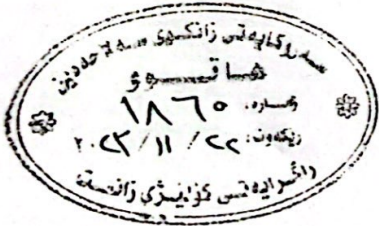 سەرۆکایەتی زانکۆی سەلاحەددین
هاتوو
ژمارە: ١٨٦٥
ڕێکەوت: ٢٠٢٣/١١/٢٢
ڕاگرایەتی کۆلێژی زانست